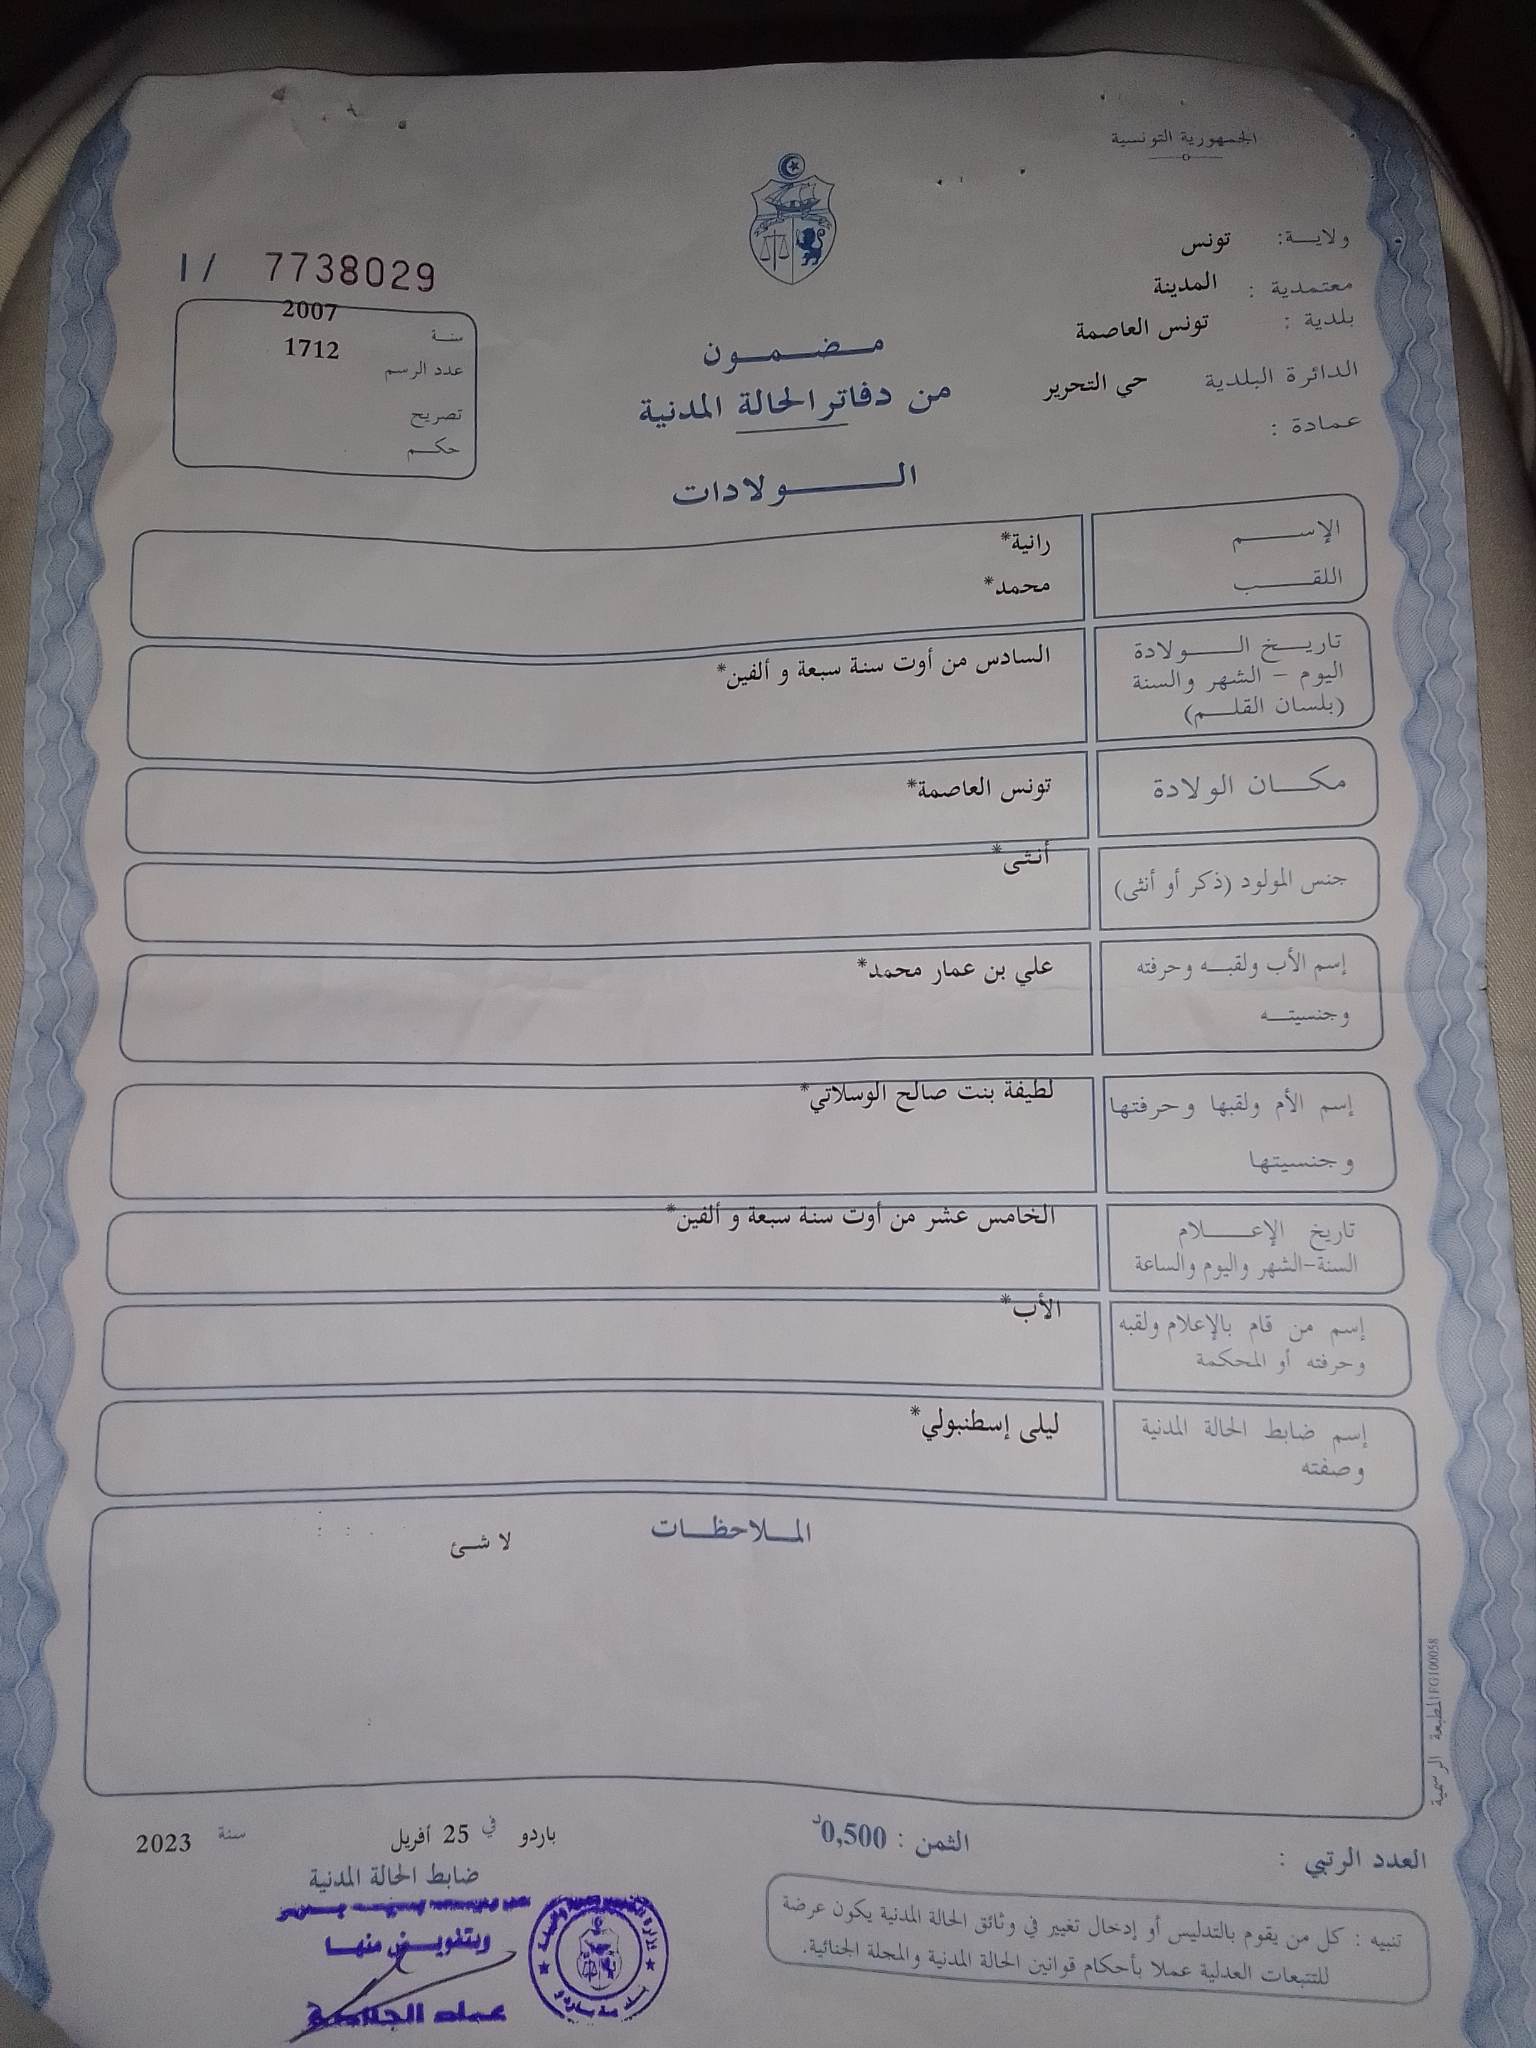 الجمهورية التونسية
ولاية: تونس
معتمدية : المدينة
بلدية : تونس العاصمة
الدائرة البلدية حي التحرير
عمادة :
I / 7738029
2007
سنة
1712
عدد الرسم
تصريح
حكم
مضمون
من دفاتر الحالة المدنية
الولادات
الإسم رانية*
اللقب محمد*
تاريخ الولادة السادس من أوت سنة سبعة و ألفين*
اليوم - الشهر والسنة
(بلسان القلم)
مكان الولادة تونس العاصمة*
جنس المولود (ذكر أو أنثى) أنثى*
إسم الأب ولقبه وحرفته علي بن عمار محمد*
وجنسيته
إسم الأم ولقبها وحرفتها لطيفة بنت صالح الوسلاتي*
وجنسيتها
تاريخ الإعلام الخامس عشر من أوت سنة سبعة و ألفين*
السنة-الشهر واليوم والساعة
إسم من قام بالإعلام ولقبه الأب*
وحرفته أو المحكمة
إسم ضابط الحالة المدنية ليلى إسطنبولي*
وصفته
الملاحظات
لا شئ
المطبعة الرسمية IFG100058
العدد الرتبي :
الثمن : 0,500د
باردو في 25 أفريل سنة 2023
ضابط الحالة المدنية
وبتفويض منها
عماد
تنبيه : كل من يقوم بالتدليس أو إدخال تغيير في وثائق الحالة المدنية يكون عرضة
للتتبعات العدلية عملا بأحكام قوانين الحالة المدنية والمجلة الجنائية.